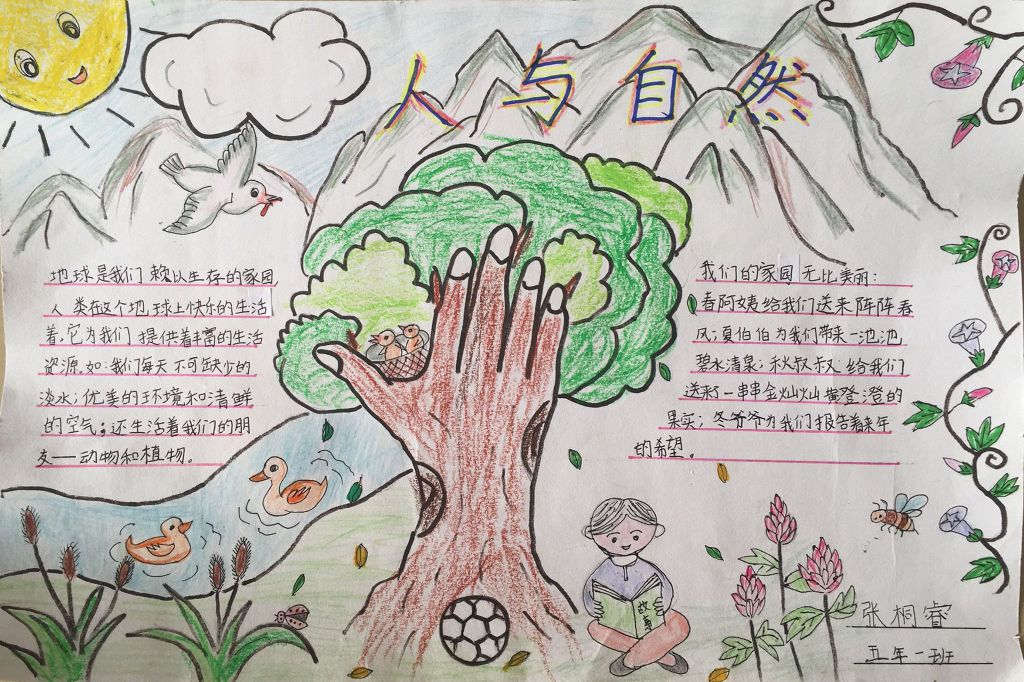 人与自然
地球是我们赖以生存的家园,
人类在这个地球上快乐的生活
着,它为我们提供着丰富的生活
资源,如:我们每天不可缺少的
淡水;优美的环境和清鲜
的空气;还生活着我们的朋
友——动物和植物。
我们的家园无比美丽:
春阿姨给我们送来阵阵春
风;夏伯伯为我们带来一池池
碧水清泉;秋叔叔给我们
送来了一串串金灿灿黄登澄的
果实;冬爷爷为我们报告着来年
的希望。
故事
张桐睿
五年一班